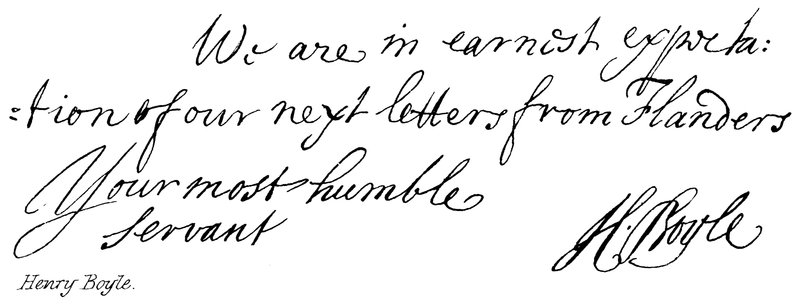 We are in earnest expecta:
:tion of our next letters from Flanders
Your most humble
servant
H. Boyle
Henry Boyle.